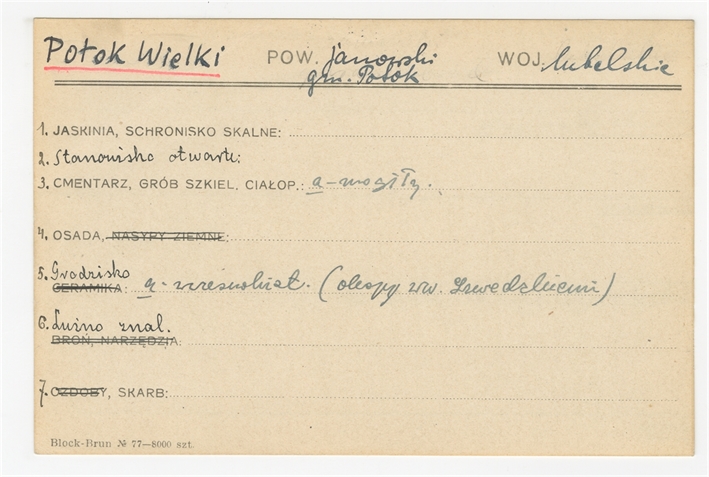 Potok Wielki POW. janowski WOJ. lubelskie
gm. Potok
1. JASKINIA, SCHRONISKO SKALNE:
2. Stanowisko otwarte:
3. CMENTARZ, GRÓB SZKIEL, CIAŁOP.: a - mogiły.
4. OSADA, NASYPY ZIEMNE:
5. Grodzisko
CERAMIKA: a - wczesnohist. (okopy zw. Szwedzkiemi)
6. Luźno znal.
BROŃ, NARZĘDZIA:
7. OZDOBY, SKARB:
Block-Brun № 77—8000 szt.